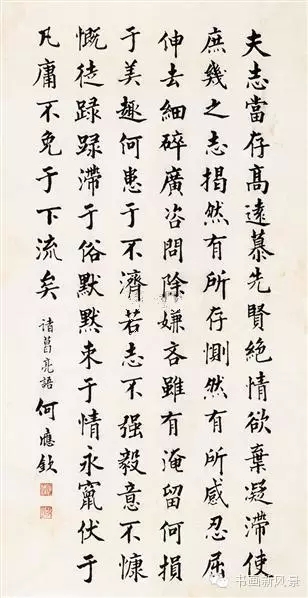 夫志當存髙遠慕先賢絶情欲棄凝滯使
庶幾之志揭然有所存惻然有所感忍屈
伸去細碎廣咨問除嫌吝雖有淹留何損
于美趣何患于不濟若志不强毅意不慷
慨徒碌碌滯于俗默默束于情永竄伏于
凡庸不免于下流矣
諸葛亮語 何應欽
书画新风景